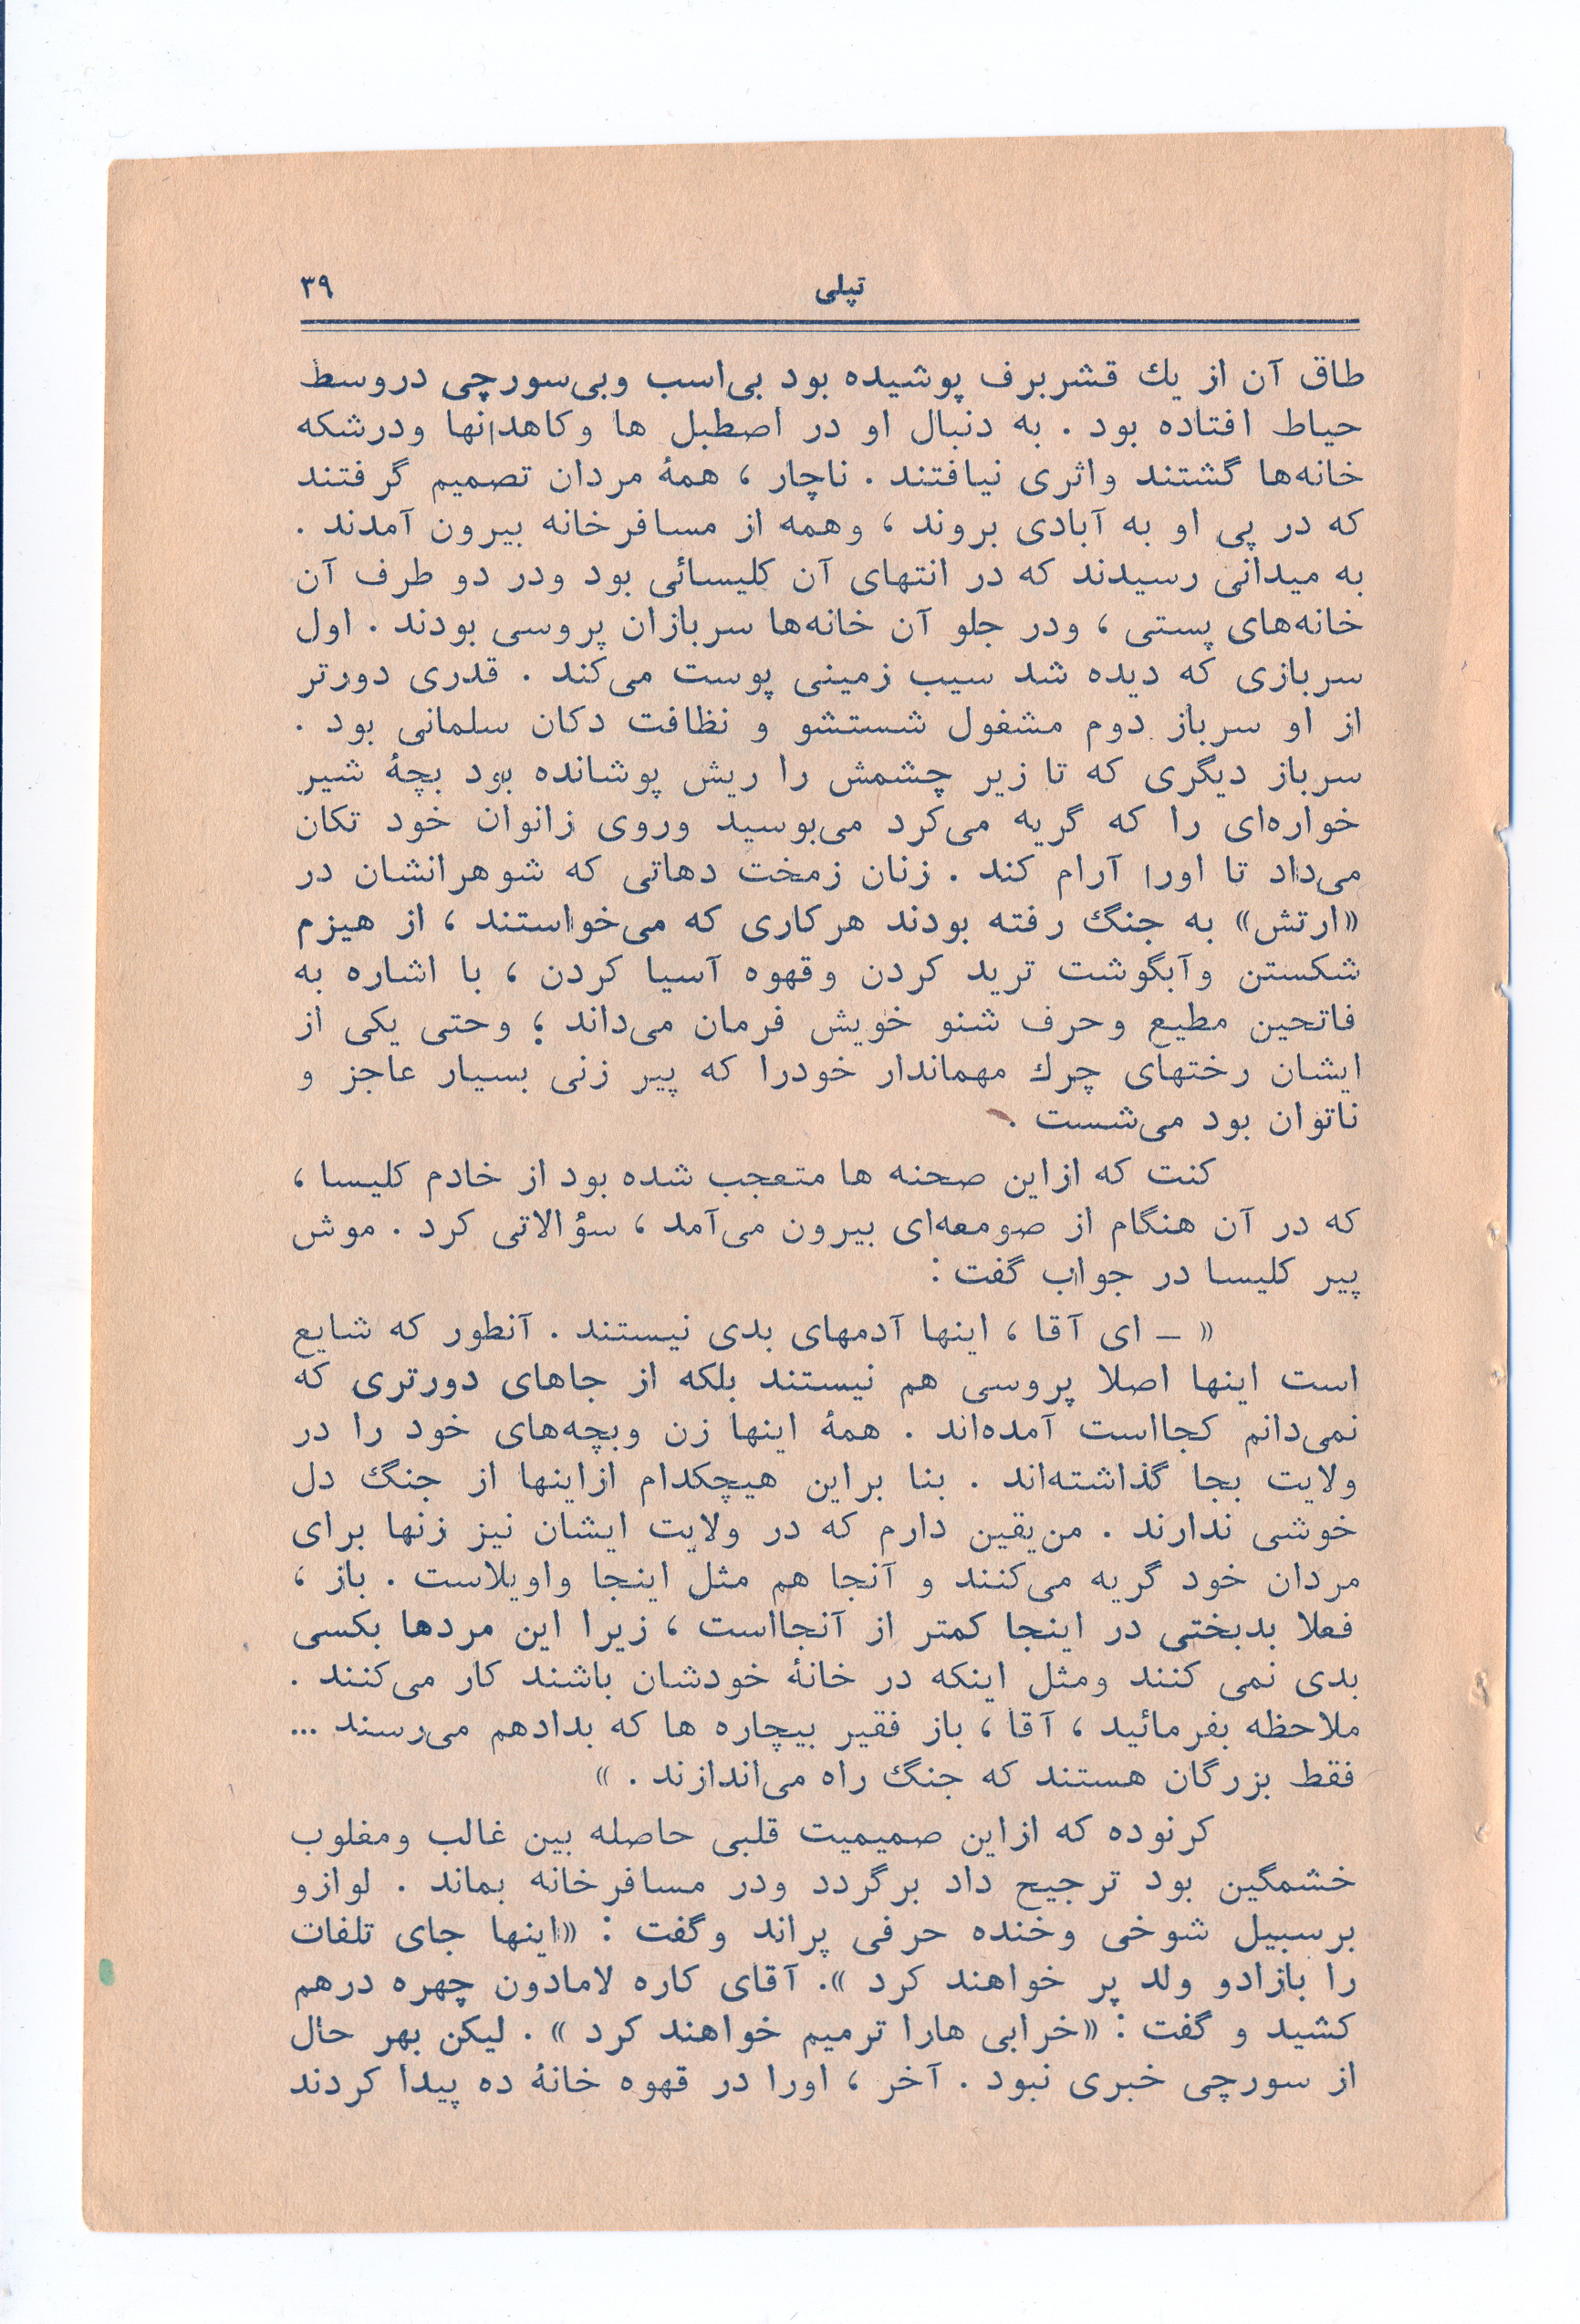 تپلی ۳۹
طاق آن از یك قشربرف پوشیده بود بی‌اسب وبی‌سورچی دروسط
حیاط افتاده بود . به دنبال او در اصطبل ها وکاهدانها ودرشکه
خانه‌ها گشتند واثری نیافتند . ناچار ، همهٔ مردان تصمیم گرفتند
که در پی او به آبادی بروند ، وهمه از مسافرخانه بیرون آمدند .
به میدانی رسیدند که در انتهای آن کلیسائی بود ودر دو طرف آن
خانه‌های پستی ، ودر جلو آن خانه‌ها سربازان پروسی بودند . اول
سربازی که دیده شد سیب زمینی پوست می‌کند . قدری دورتر
از او سرباز دوم مشغول شستشو و نظافت دکان سلمانی بود .
سرباز دیگری که تا زیر چشمش را ریش پوشانده بود بچهٔ شیر
خواره‌ای را که گریه می‌کرد می‌بوسید وروی زانوان خود تکان
می‌داد تا اورا آرام کند . زنان زمخت دهاتی که شوهرانشان در
«ارتش» به جنگ رفته بودند هرکاری که می‌خواستند ، از هیزم
شکستن وآبگوشت ترید کردن وقهوه آسیا کردن ، با اشاره به
فاتحین مطیع وحرف شنو خویش فرمان می‌داند ؛ وحتی یکی از
ایشان رختهای چرك مهماندار خودرا که پیر زنی بسیار عاجز و
ناتوان بود می‌شست .
کنت که ازاین صحنه ها متعجب شده بود از خادم کلیسا ،
که در آن هنگام از صومعه‌ای بیرون می‌آمد ، سؤالاتی کرد . موش
پیر کلیسا در جواب گفت :
« – ای آقا ، اینها آدمهای بدی نیستند . آنطور که شایع
است اینها اصلا پروسی هم نیستند بلکه از جاهای دورتری که
نمی‌دانم کجااست آمده‌اند . همهٔ اینها زن وبچه‌های خود را در
ولایت بجا گذاشته‌اند . بنا براین هیچکدام ازاینها از جنگ دل
خوشی ندارند . من‌یقین دارم که در ولایت ایشان نیز زنها برای
مردان خود گریه می‌کنند و آنجا هم مثل اینجا واویلاست . باز ،
فعلا بدبختی در اینجا کمتر از آنجااست ، زیرا این مردها بکسی
بدی نمی کنند ومثل اینکه در خانهٔ خودشان باشند کار می‌کنند .
ملاحظه بفرمائید ، آقا ، باز فقیر بیچاره ها که بدادهم می‌رسند ...
فقط بزرگان هستند که جنگ راه می‌اندازند . »
کرنوده که ازاین صمیمیت قلبی حاصله بین غالب ومغلوب
خشمگین بود ترجیح داد برگردد ودر مسافرخانه بماند . لوازو
برسبیل شوخی وخنده حرفی پراند وگفت : «اینها جای تلفات
را بازادو ولد پر خواهند کرد ». آقای کاره لامادون چهره درهم
کشید و گفت : «خرابی هارا ترمیم خواهند کرد » . لیکن بهر حال
از سورچی خبری نبود . آخر ، اورا در قهوه خانهٔ ده پیدا کردند